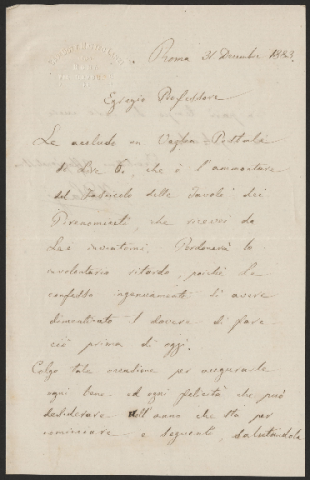 Roma 31 Dicembre 1883.
Egregio Professore
Le accludo un Vaglia Postale
di Lire 6, che è l'ammontare
del Fascicolo delle Tavole dei
che ricevei da
Lei
involontario ritardo, poichè Le
confesso ingenuamente di avere
dimenticato l dovere di fare
ciò prima di oggi.
Colgo tale occasione per augurarle
ogni bene ed ogni felicità che può
desiderare nell'anno che sta per
cominciare e seguenti, salutandola